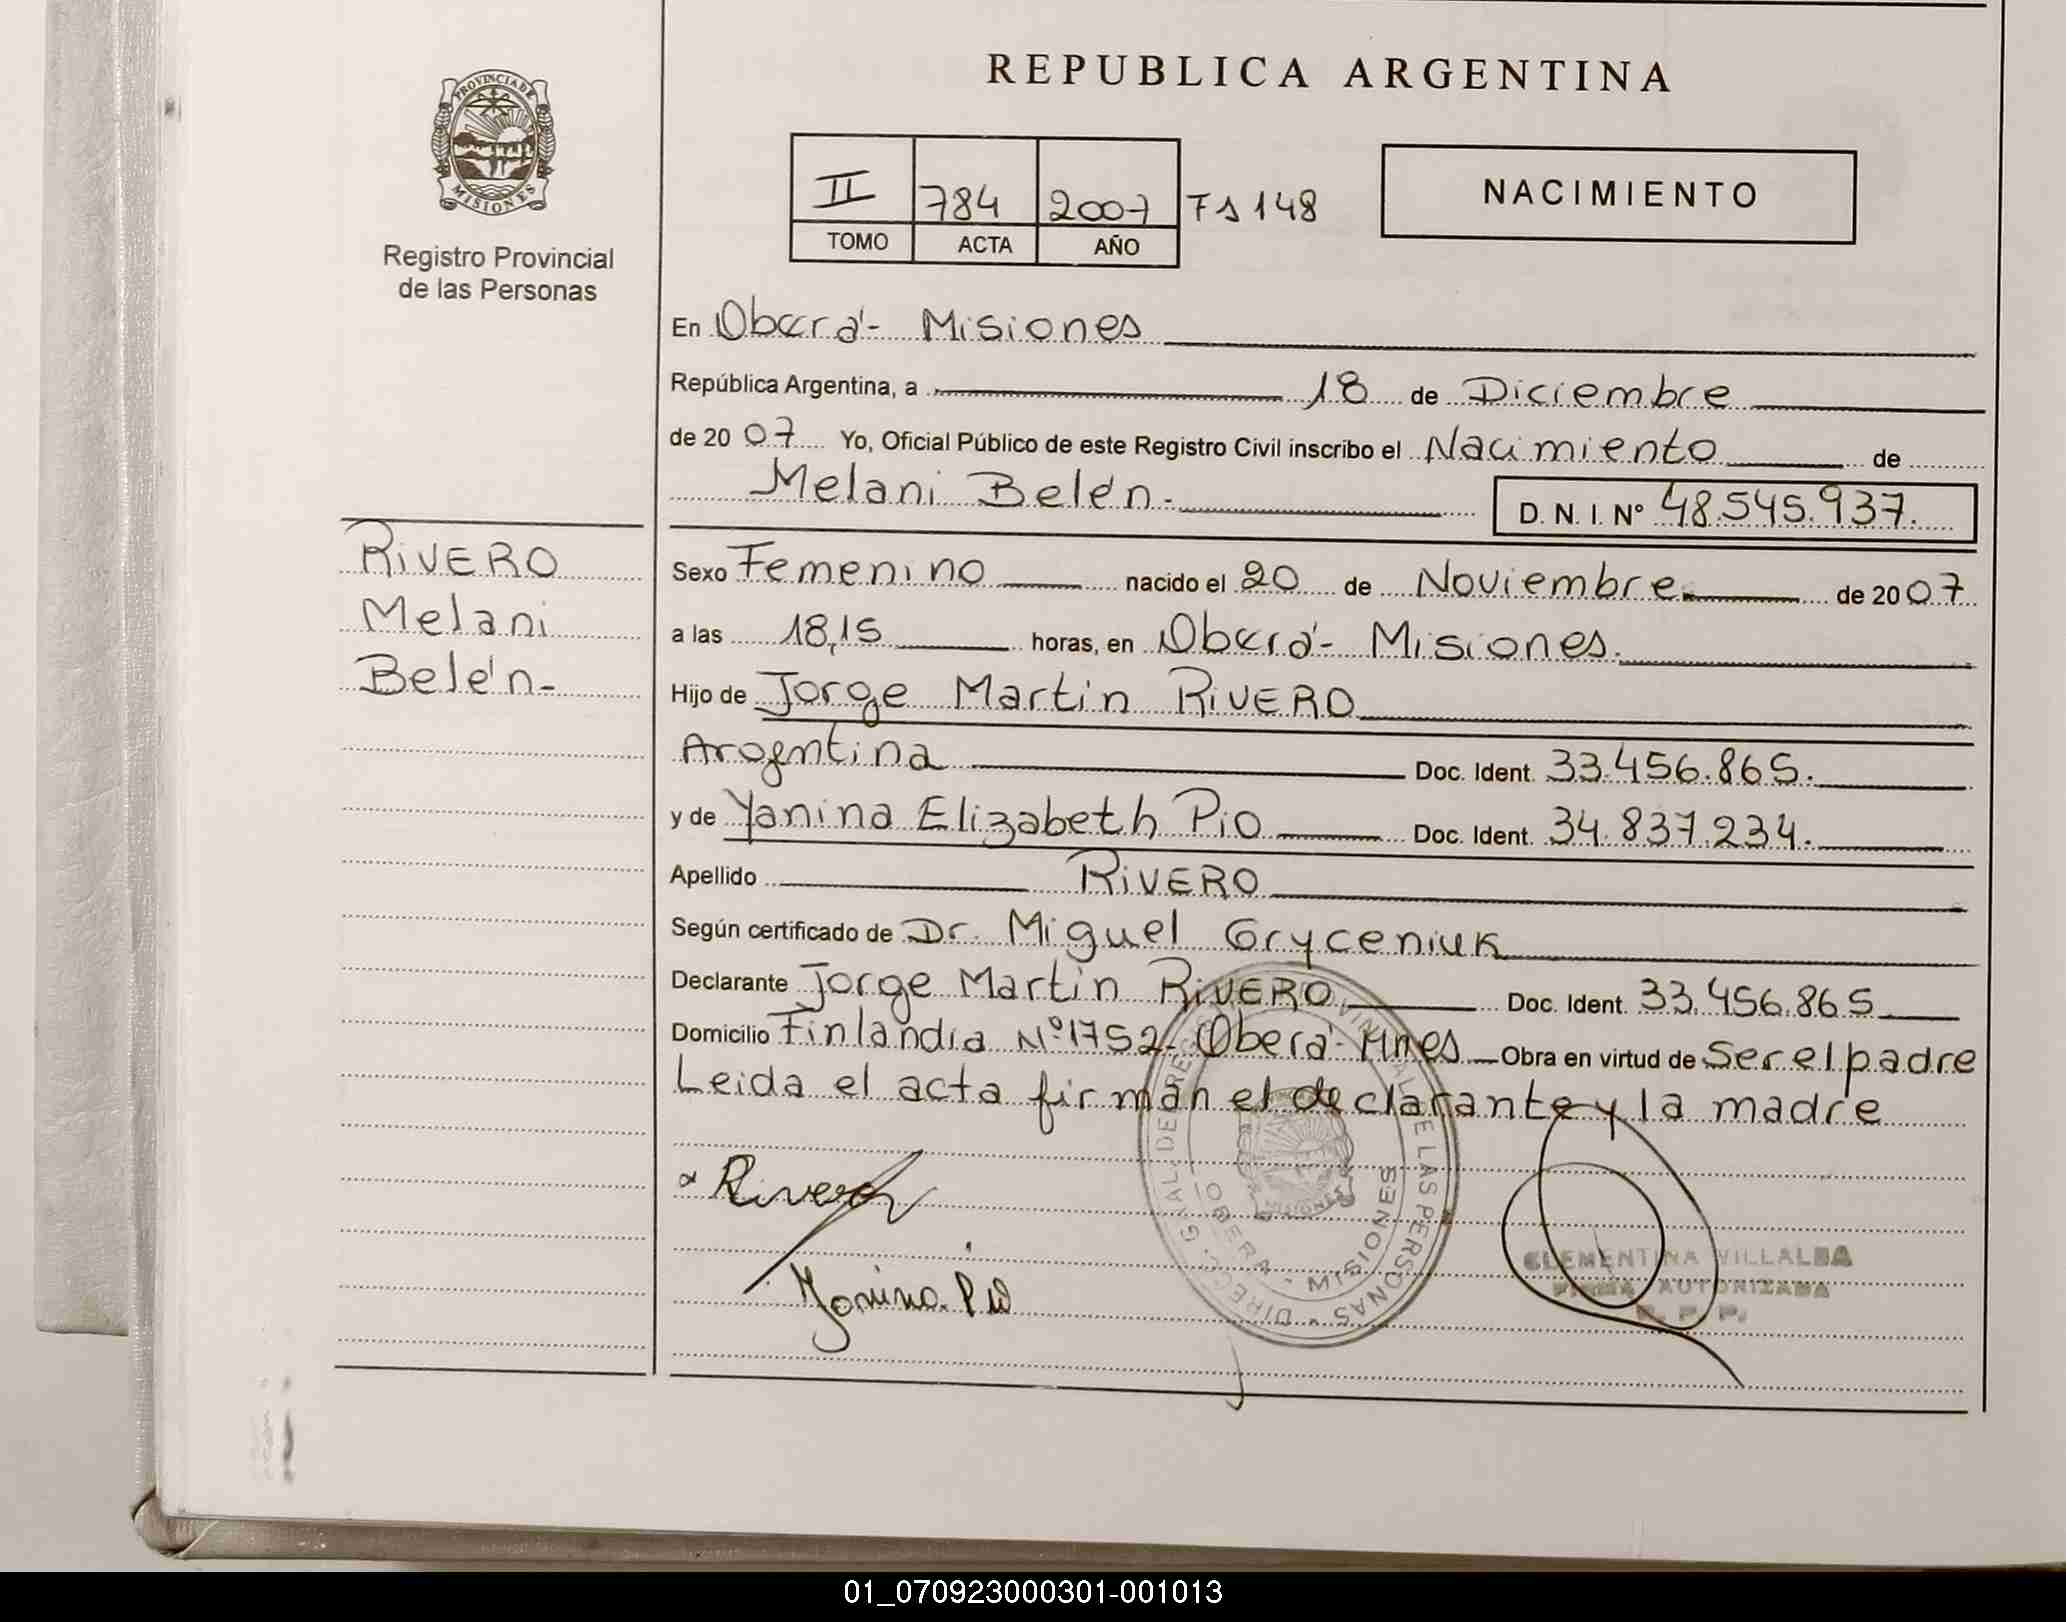 REPUBLICA ARGENTINA
PROVINCIA DE
MISIONES
Registro Provincial
de las Personas
II 784 2007 Fs 148
TOMO ACTA AÑO
NACIMIENTO
En Oberá - Misiones
República Argentina, a 18 de Diciembre
de 2007 Yo, Oficial Público de este Registro Civil inscribo el Nacimiento de
Melani Belén.- D. N. I. Nº 48.545.937.
RIVERO
Melani
Belén-
Sexo Femenino nacido el 20 de Noviembre de 2007
a las 18,15 horas, en Oberá - Misiones.
Hijo de Jorge Martin RIVERO
Arogentina Doc. Ident. 33.456.865.
y de Yanina Elizabeth Pio Doc. Ident. 34.837.234.
Apellido RIVERO
Según certificado de Dr. Miguel Gryceniuk
Declarante Jorge Martin RIVERO Doc. Ident. 33.456.865
Domicilio Finlandia Nº 1752 - Oberá - Mnes Obra en virtud de Ser el padre
Leida el acta firman el declarante y la madre
Rivero
Yanina Pio
OBERA - MISIONES
CLEMENTINA VILLALBA
FIRMA AUTORIZADA
R. P. P.
01_070923000301-001013